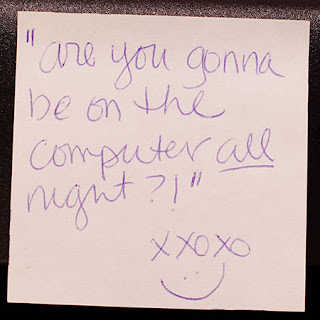 "are you gonna
be on the
computer all
night?!"
xxoxo